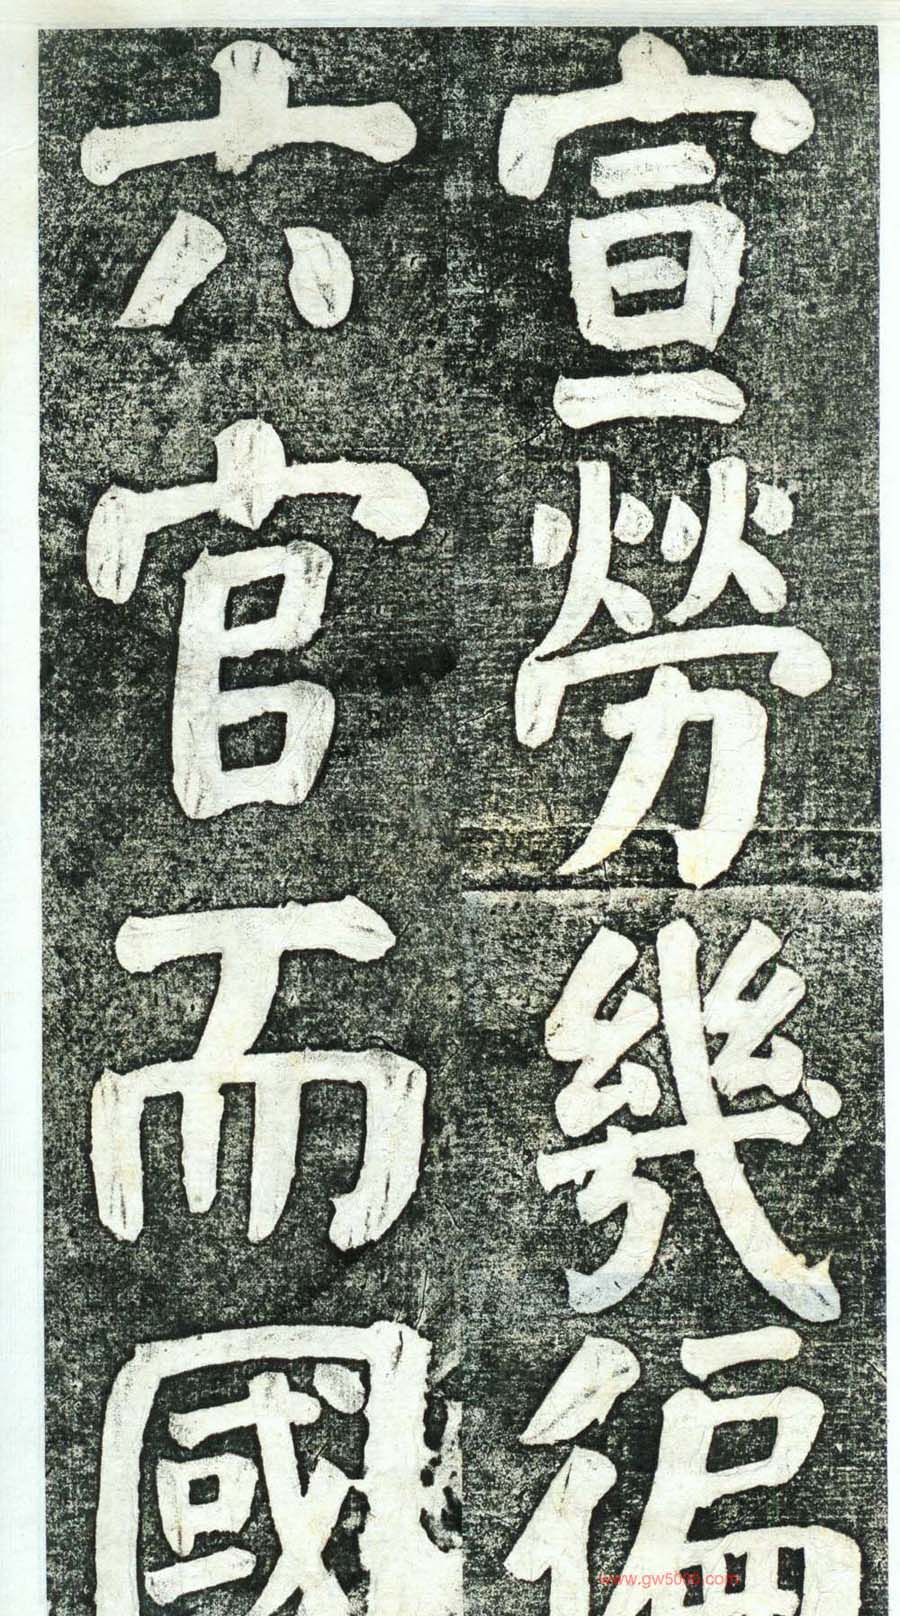 宣勞幾徧
六官而國
www.gw5000.com